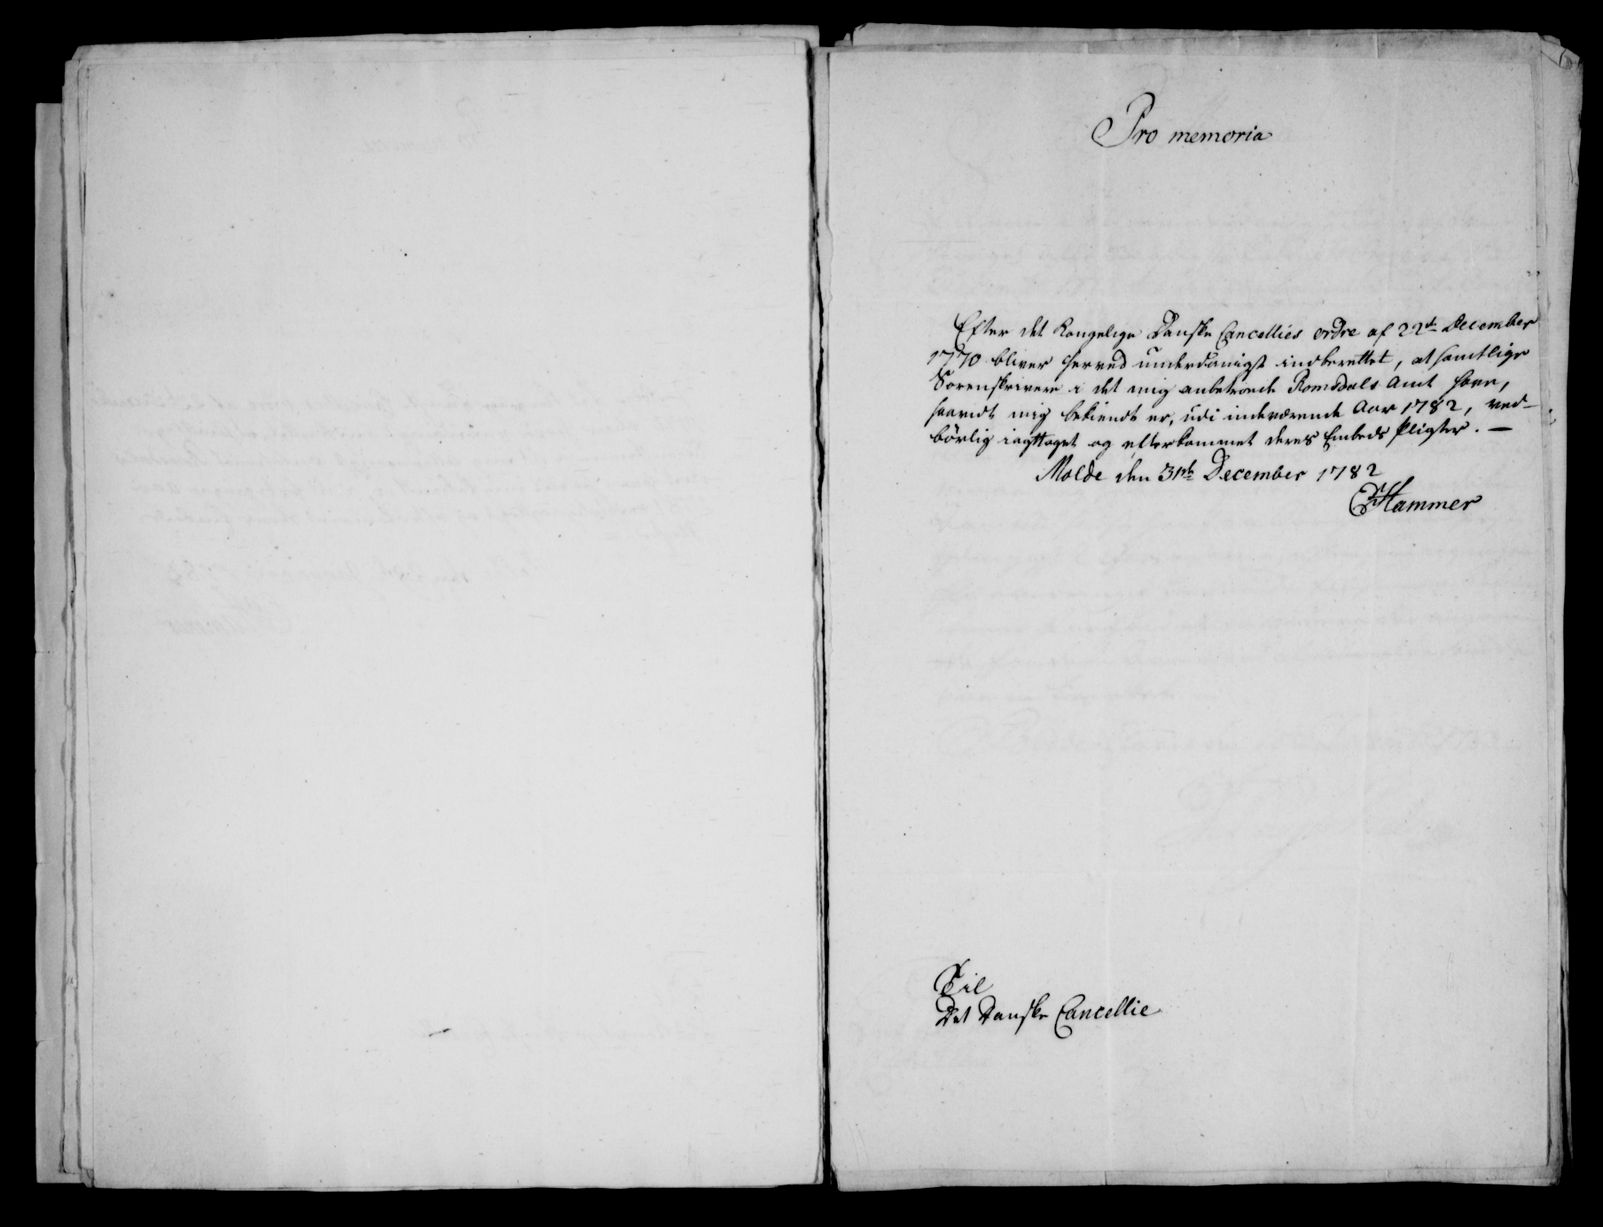 Pro memoria
Efter det Kongelige Danske Cancellies ordre af 22de December
1770 bliver herved underdanigst indberettet, at samtlige
Sorenskrivere i det mig anbetroede Romsdals Amt have,
saavidt mig bekiendt er, udi indeværende Aar 1782, ved-
börlig iagttaget og efterkommet deres Embeds Pligter. —
Molde den 31te December 1782
Hammer
Til
Det Danske Cancellie